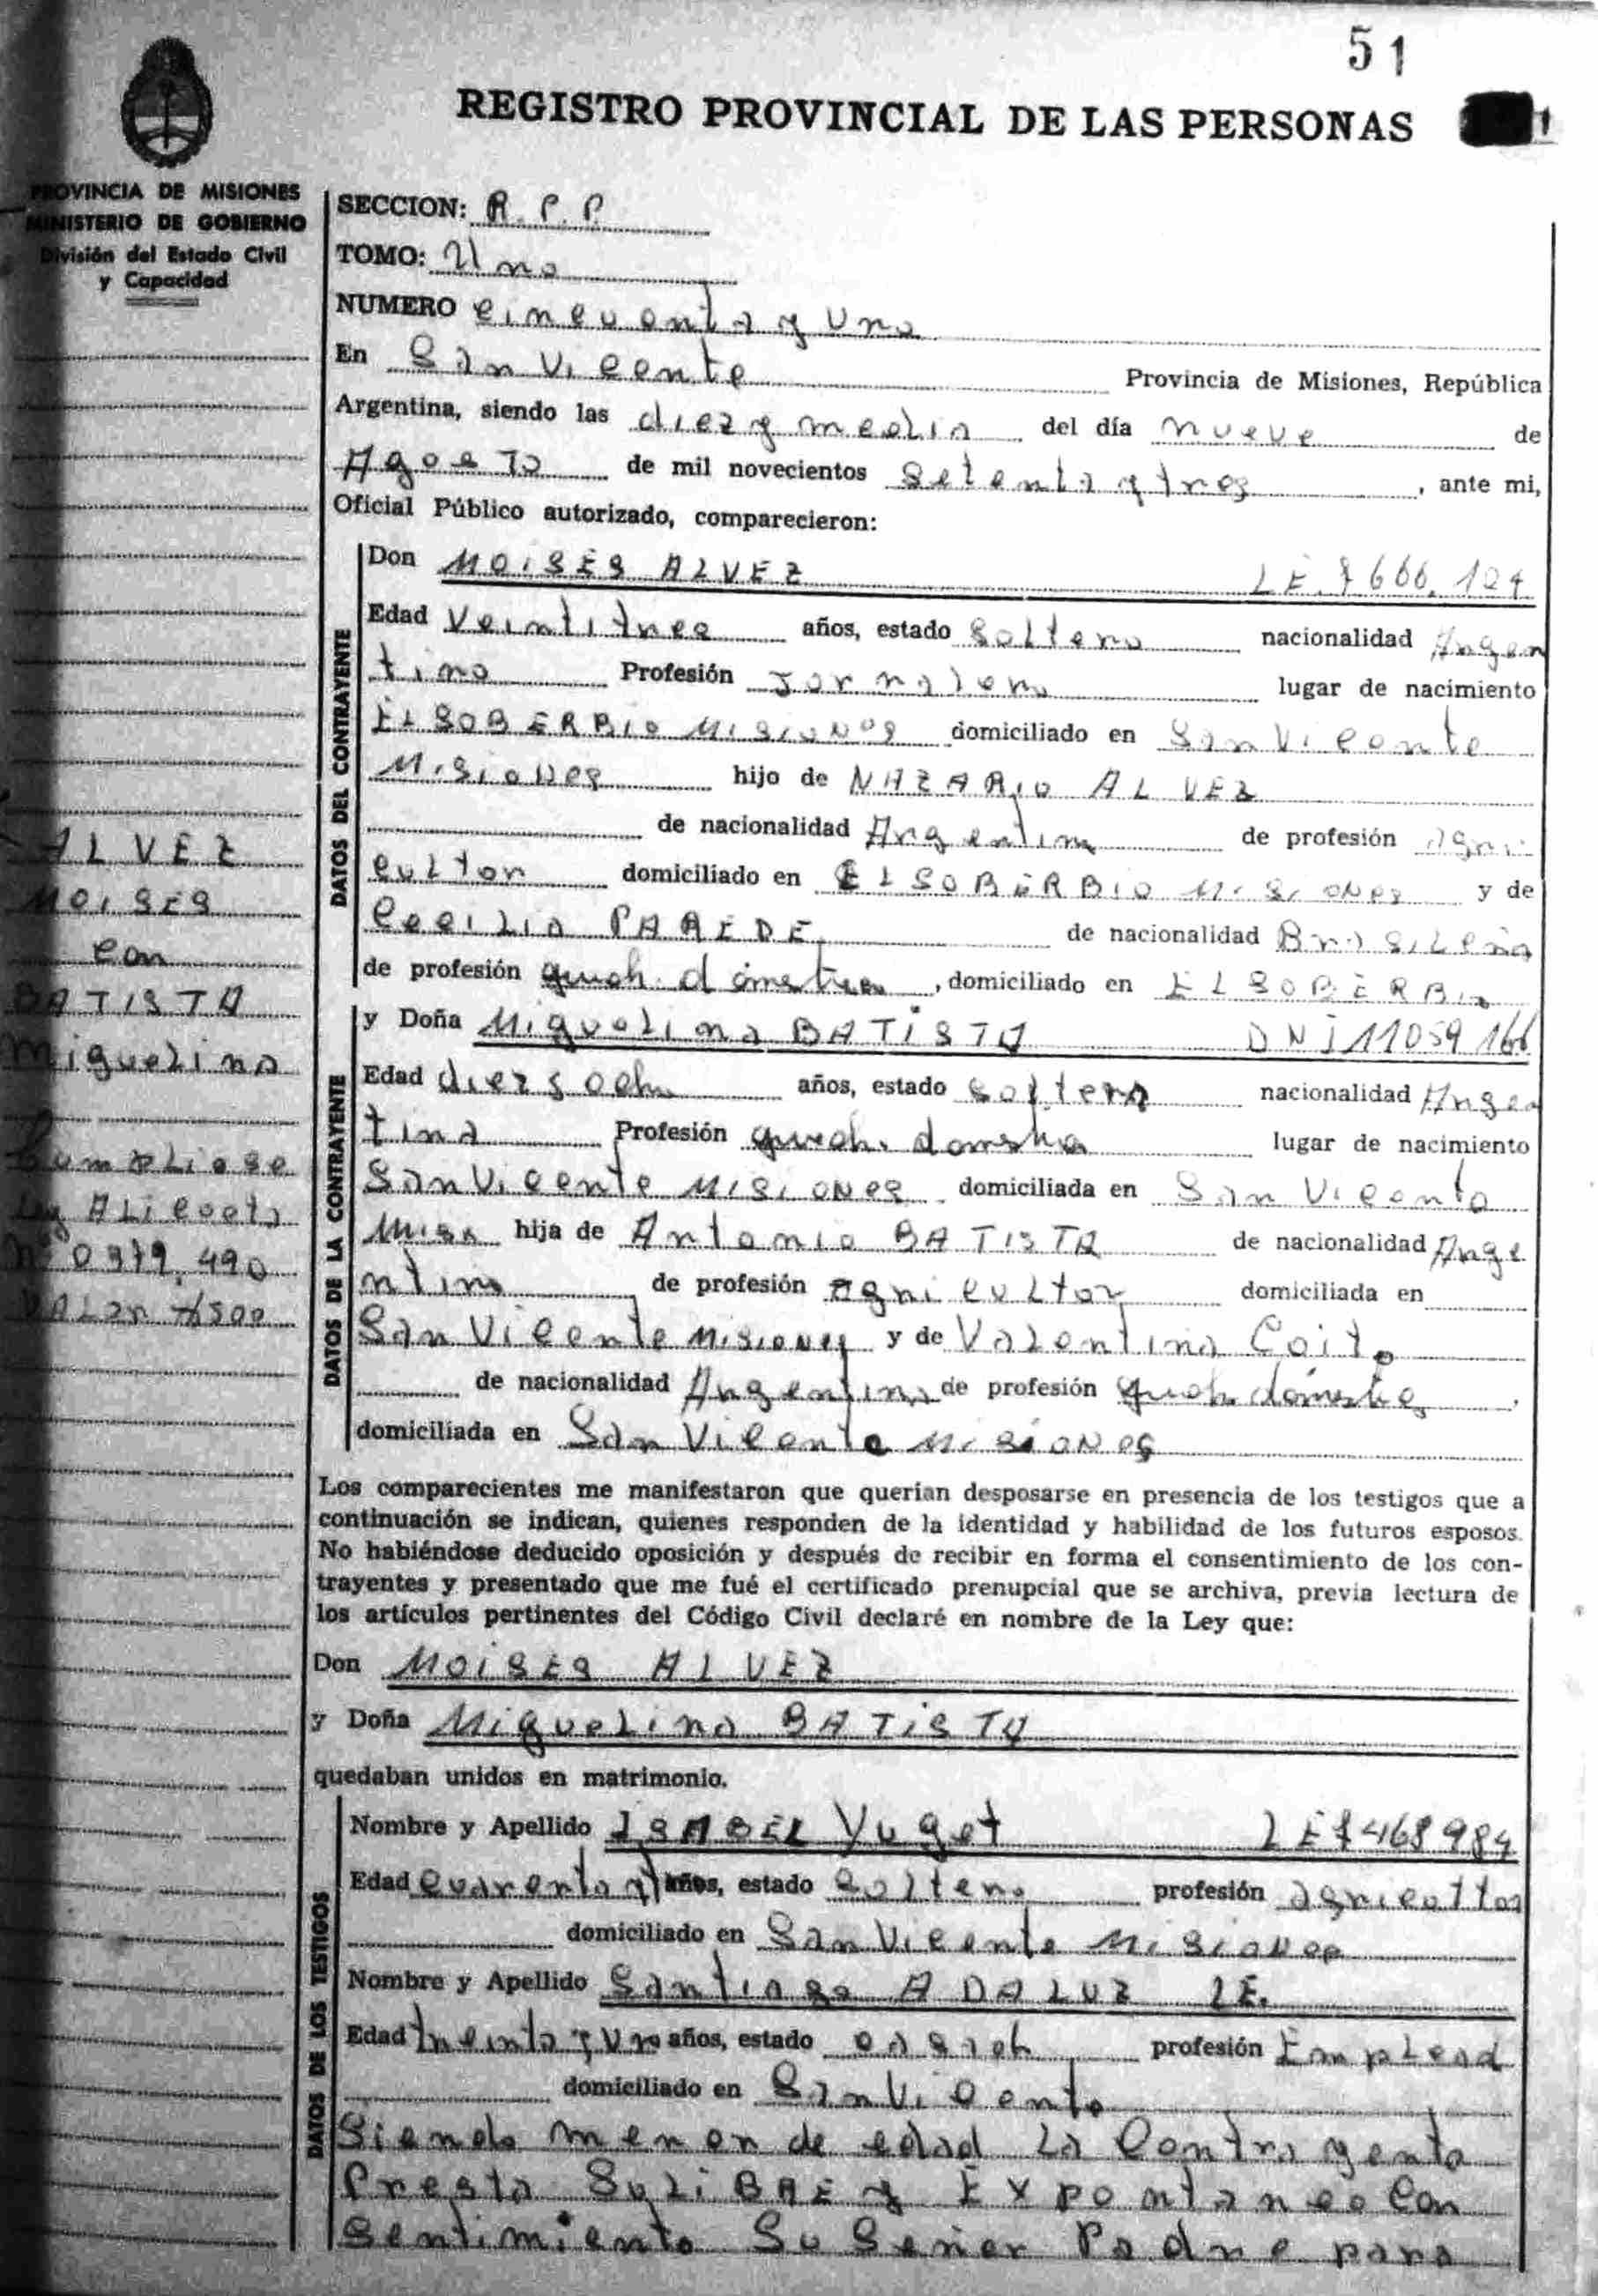 51
REGISTRO PROVINCIAL DE LAS PERSONAS
PROVINCIA DE MISIONES
MINISTERIO DE GOBIERNO
División del Estado Civil
y Capacidad
SECCION: R. P. P.
TOMO: Uno
NUMERO cincuenta y uno
En San Vicente Provincia de Misiones, República
Argentina, siendo las diez y media del día nueve de
Agosto de mil novecientos setenta y tres, ante mi,
Oficial Público autorizado, comparecieron:
DATOS DEL CONTRAYENTE
Don MOISES ALVEZ LE. 7666.124
Edad Veintitres años, estado soltero nacionalidad Argen
tino Profesión Jornalero lugar de nacimiento
EL SOBERBIO MISIONES domiciliado en San Vicente
Misiones hijo de NAZARIO ALVEZ
de nacionalidad Argentina de profesión agri
cultor domiciliado en EL SOBERBIO MISIONES y de
Cecilia PAREDE de nacionalidad Brasileña
de profesión domiciliado en EL SOBERBIO
DATOS DE LA CONTRAYENTE
y Doña Miguelina BATISTA DNI 11059166
Edad años, estado soltera nacionalidad Argen
tina Profesión lugar de nacimiento
San Vicente MISIONES domiciliada en San Vicente
Mins hija de Antonio BATISTA de nacionalidad Arge
ntina de profesión Agricultor domiciliada en
San Vicente Misiones y de Valentina Coito
de nacionalidad Argentina de profesión
domiciliada en San Vicente MISIONES
Los comparecientes me manifestaron que querían desposarse en presencia de los testigos que a
continuación se indican, quienes responden de la identidad y habilidad de los futuros esposos.
No habiéndose deducido oposición y después de recibir en forma el consentimiento de los con-
trayentes y presentado que me fué el certificado prenupcial que se archiva, previa lectura de
los artículos pertinentes del Código Civil declaré en nombre de la Ley que:
Don MOISES ALVEZ
y Doña Miguelina BATISTA
quedaban unidos en matrimonio.
DATOS DE LOS TESTIGOS
Nombre y Apellido ISABEL Yuget LE 7468984
Edad cuarenta y años, estado soltero profesión agricultor
domiciliado en San Vicente Misiones
Nombre y Apellido Santiago A DALUZ LE.
Edad treinta y un años, estado casado profesión Emplead
domiciliado en San Vicente
Siendo menor de edad la contrayente
Presta Su LiBRE y Expontaneo Con
sentimiento Su Señor Padre para
ALVEZ
MOISES
con
BATISTA
Miguelina
Cumpliose
Ley Alicoeta
Nº 0379,490
VALOR $500